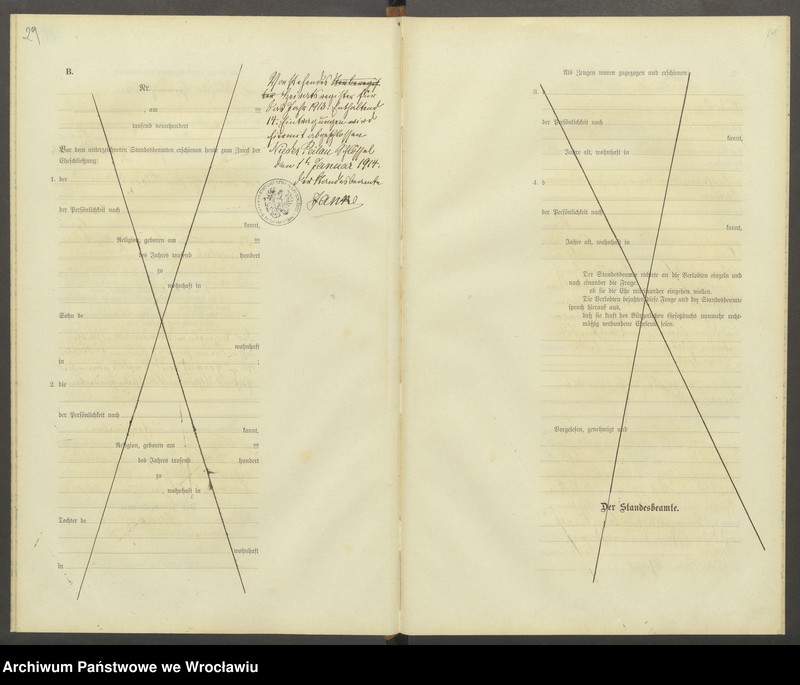 29
B.
Nr.
, am
tausend neunhundert
Vor dem unterzeichneten Standesbeamten erschienen heute zum Zweck der
Eheschließung:
1. der
der Persönlichkeit nach
kannt,
Religion, geboren am
des Jahres tausend hundert
zu
, wohnhaft in
Sohn de
wohnhaft
in ;
2. die
der Persönlichkeit nach
kannt,
Religion, geboren am
des Jahres tausend hundert
zu
, wohnhaft in
Tochter de
wohnhaft
in
Vorstehendes Sterberegis-
ter Heiratsregister für
das Jahr 1913. Enthaltend
14. Eintragungen wird
hiermit abgeschlossen
Nieder Peilau Schlössel
den 1ten Januar 1914.
Der Standesbeamte
Janke
Als Zeugen waren zugezogen und erschienen:
3. d
der Persönlichkeit nach
kannt,
Jahre alt, wohnhaft in
4. d
der Persönlichkeit nach
kannt,
Jahre alt, wohnhaft in
Der Standesbeamte richtete an die Verlobten einzeln und
nach einander die Frage:
ob sie die Ehe miteinander eingehen wollen.
Die Verlobten bejahten diese Frage und der Standesbeamte
sprach hierauf aus,
daß sie kraft des Bürgerlichen Gesetzbuchs nunmehr recht-
mäßig verbundene Eheleute seien.
Vorgelesen, genehmigt und
Der Standesbeamte.
Archiwum Państwowe we Wrocławiu